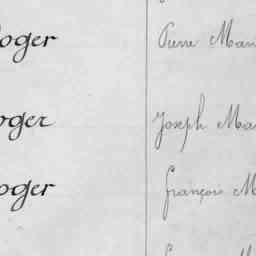 oger Pierre Mari
oger Joseph Ma
oger François M